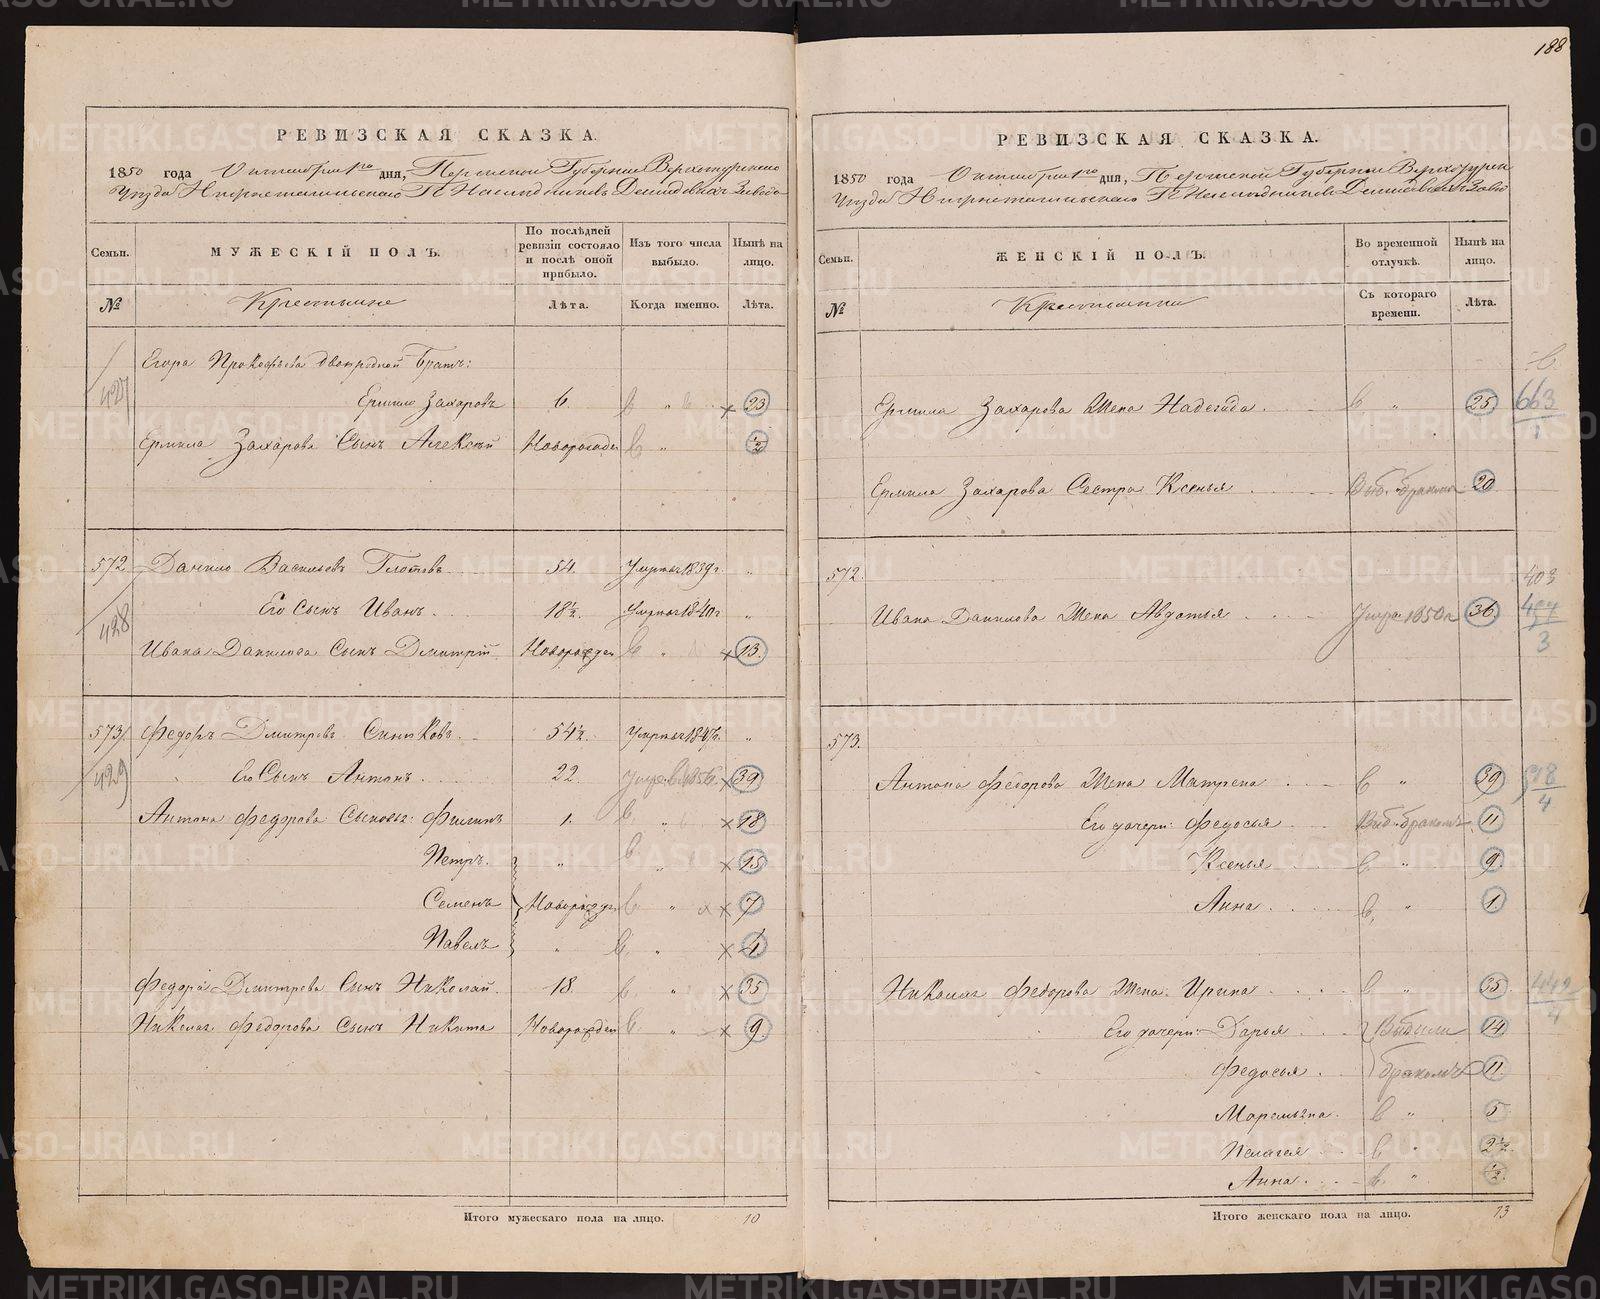 188
РЕВИЗСКАЯ СКАЗКА.
1850 года Октября 1го дня, Пермской Губернии Верхотурскаго
Уѣзда Нижнетагильскаго Гг Наслѣдниковъ Демидовыхъ Завода
Семьи. МУЖЕСКІЙ ПОЛЪ. По послѣдней ревизіи состояло и послѣ оной прибыло. Изъ того числа выбыло. Нынѣ на лицо.
№ Крестьяне Лѣта. Когда именно. Лѣта.
427
Егора Прокофьева двоюродной Братъ:
Ермило Захаровъ 6. 23
Ермила Захарова Сынъ Алексѣй Новорожден ½
572 Данило Васильевъ Глотовъ 54. Умеръ 1839 г. "
428
Его Сынъ Иванъ. 18½. Умеръ 1840 г "
Ивана Данилова Сынъ Дмитрій Новорожден " 13.
573 Федоръ Дмитревъ Синиковъ. 54½. Умеръ 1847 г. "
429
Его Сынъ Антонъ. 22. 39
Антона Федорова Сыновья: Филипъ 1. " 18
Петръ. " " 15
Семенъ Новорожд. " 7
Павелъ " " 4
Федора Дмитрева Сынъ Николай. 18. " 35
Николая Федорова Сынъ Никита Новорожден " 9
Итого мужескаго пола на лицо. 10
РЕВИЗСКАЯ СКАЗКА.
1850 года Октября 1го дня, Пермской Губернии Верхотурск
Уѣзда Нижнетагильскаго Гг Наслѣдниковъ Демидовыхъ Заво
Семьи. ЖЕНСКІЙ ПОЛЪ. Во временной отлучкѣ. Нынѣ на лицо.
№ Крестьянки Съ котораго времени. Лѣта.
Ермила Захарова Жена Надежда. " 25 663
1
Ермила Захарова Сестра Ксенья Выб. бракомъ 20
572. 403
Ивана Данилова Жена Авдотья Умер. 1850 г 36
3
573.
Антона Федорова Жена Матрена " 39 518
4
Его дочери: Федосья Выб. бракомъ 11
Ксенья " 9
Анна. " 1.
Николая Федорова Жена Ирина " 35 442
4
Его дочери: Дарья Выбыли 14
Федосья. бракомъ 11.
Маремьяна. " 5
Пелагея " 2½
Анна. " ½.
Итого женскаго пола на лицо. 13
METRIKI.GASO-URAL.RU